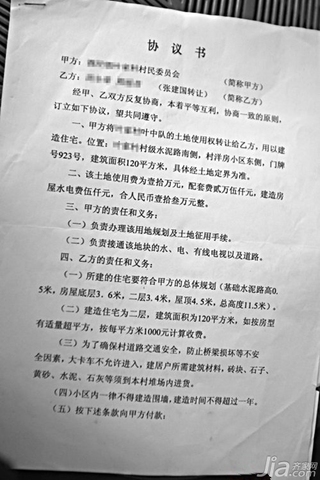 协 议 书
甲方： 村民委员会 （简称甲方）
乙方： （张建国转让） （简称乙方）
经甲、乙双方反复协商，本着平等互利，协商一致的原则，
订立如下协议，望共同遵守。
一、甲方将 叶中队的土地使用权转让给乙方，用以建
造住宅。位置： 村级水泥路南侧，村洋房小区东侧，门牌
号923号，建筑面积120平方米，具体经土地定界为准。
二、该土地使用费为壹拾万元，配套费贰万伍仟元，建造房
屋水电费伍仟元，合人民币壹拾叁万元整。
三、甲方的责任和义务：
（一）负责办理该用地规划及土地征用手续。
（二）负责接通该地块的水、电、有线电视以及道路。
四、乙方的责任和义务：
（一）所建的住宅要符合甲方的总体规划（基础水泥路高0.
5米，房屋底层3.6米，二层3.4米，屋顶4.5米，总高度11.5米）。
（二）建造住宅为二层，建筑面积为120平方米，如按房型
有适量超平方，按每平方米1000元计算收费。
（三）为了确保村道路交通安全，防止桥梁损坏等不安
全因素，大卡车不允许进入，建居户所需建筑材料，砖块、石子、
黄砂、水泥、石灰等须到本村堆场内进货。
（四）小区内一律不得建造围墙，建造时间不得超过一年。
（五）按下述条款向甲方付款：
Jia.com
齐家网